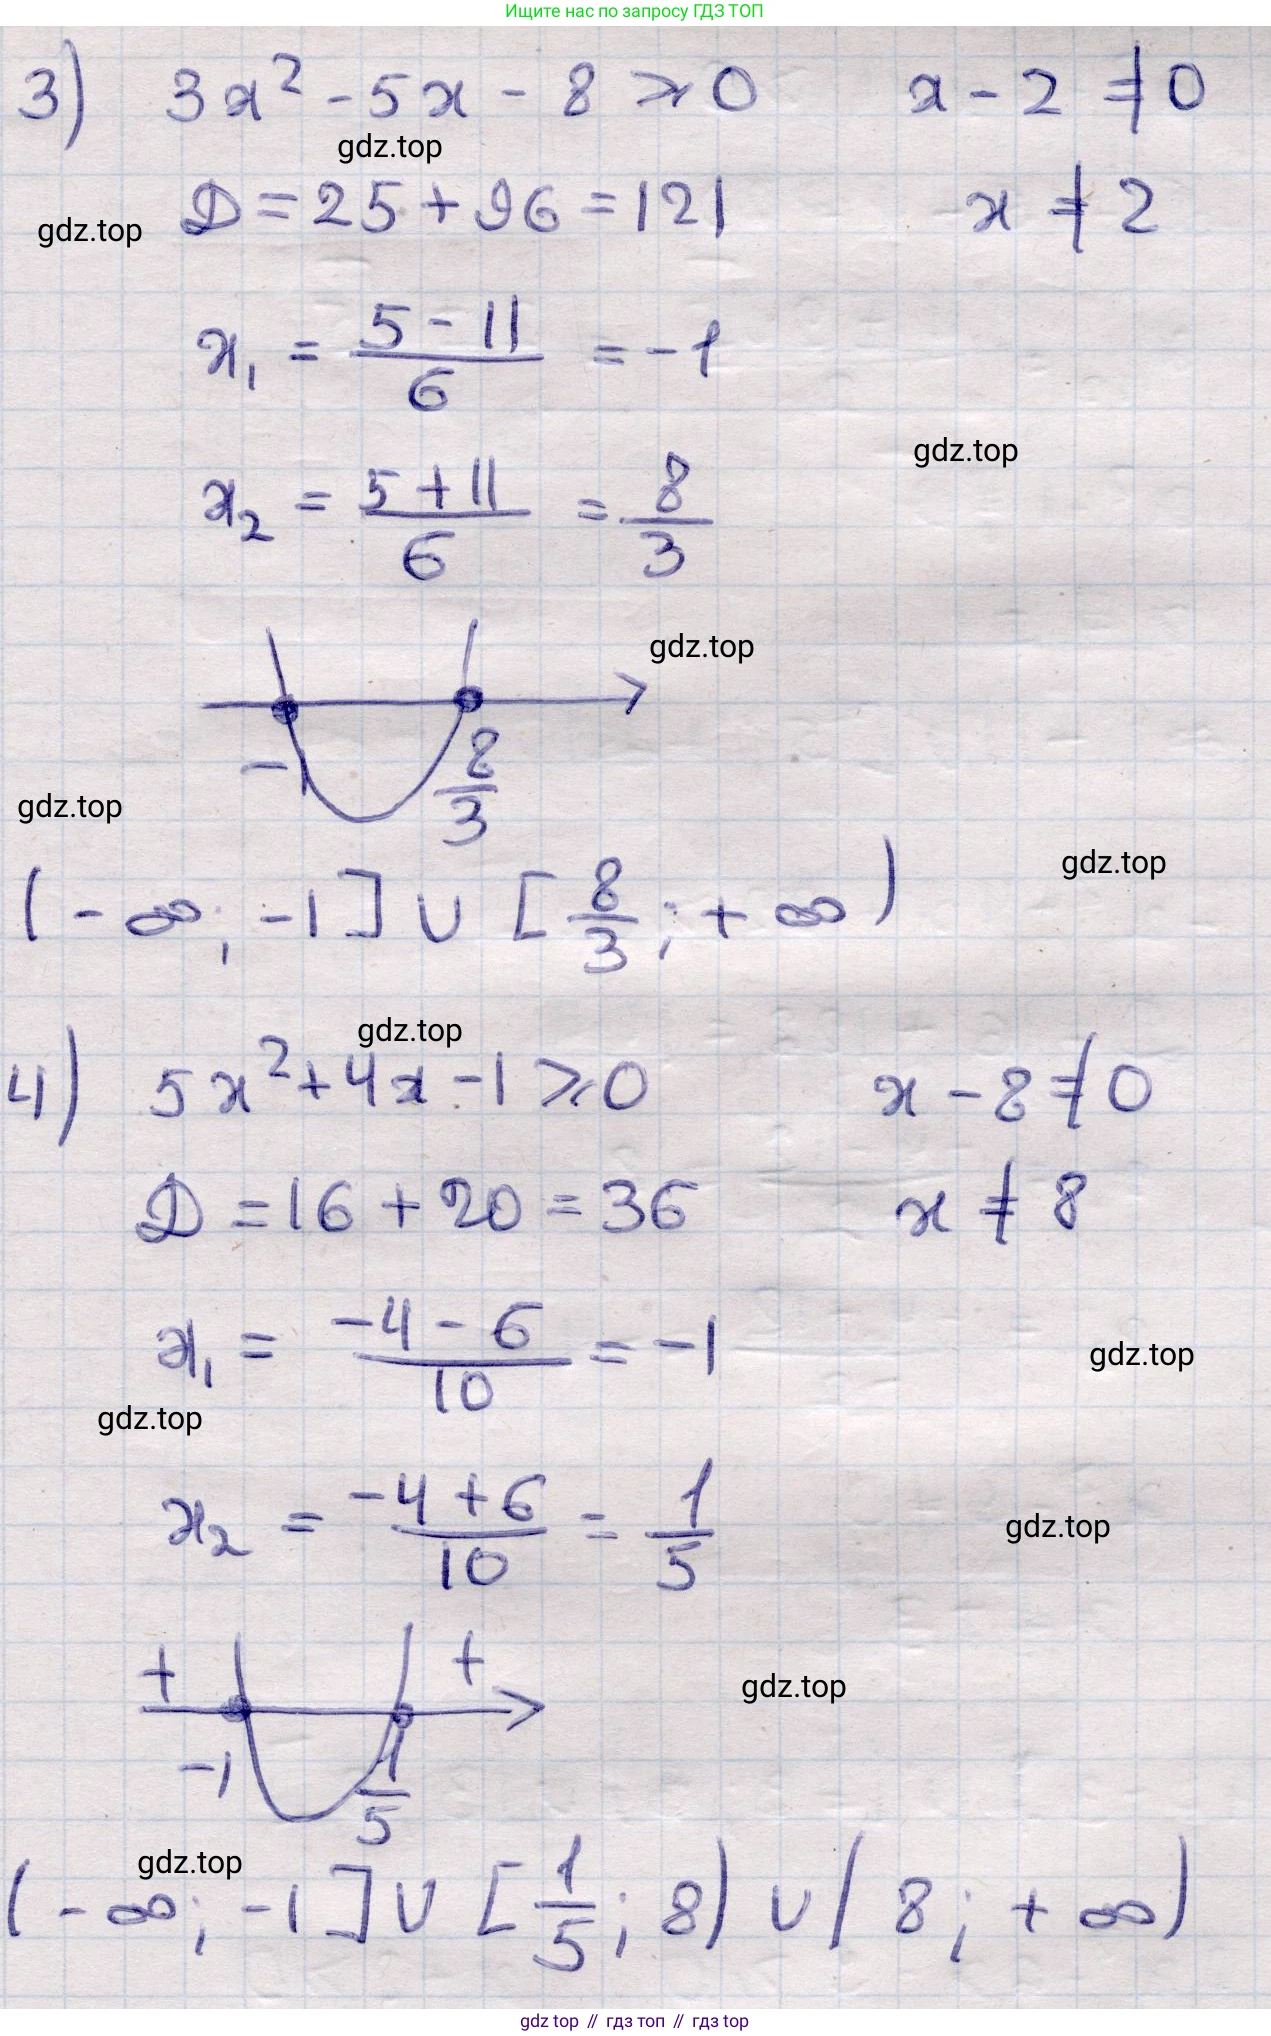 Ищите нас по запросу ГДЗ ТОП
3) 3x² - 5x - 8 ⩾ 0 x - 2 ≠ 0
gdz.top
Д = 25 + 96 = 121 x ≠ 2
gdz.top
x₁ = (5 - 11)/6 = -1
gdz.top
x₂ = (5 + 11)/6 = 8/3
gdz.top
-1 8/3
gdz.top
gdz.top
(-∞; -1] ∪ [8/3; +∞)
gdz.top
4) 5x² + 4x - 1 ⩾ 0 x - 8 ≠ 0
Д = 16 + 20 = 36 x ≠ 8
x₁ = (-4 - 6)/10 = -1
gdz.top
gdz.top
x₂ = (-4 + 6)/10 = 1/5
gdz.top
+ +
gdz.top
-1 1/5
gdz.top
(-∞; -1] ∪ [1/5; 8) ∪ (8; +∞)
gdz top // гдз топ // gdz top